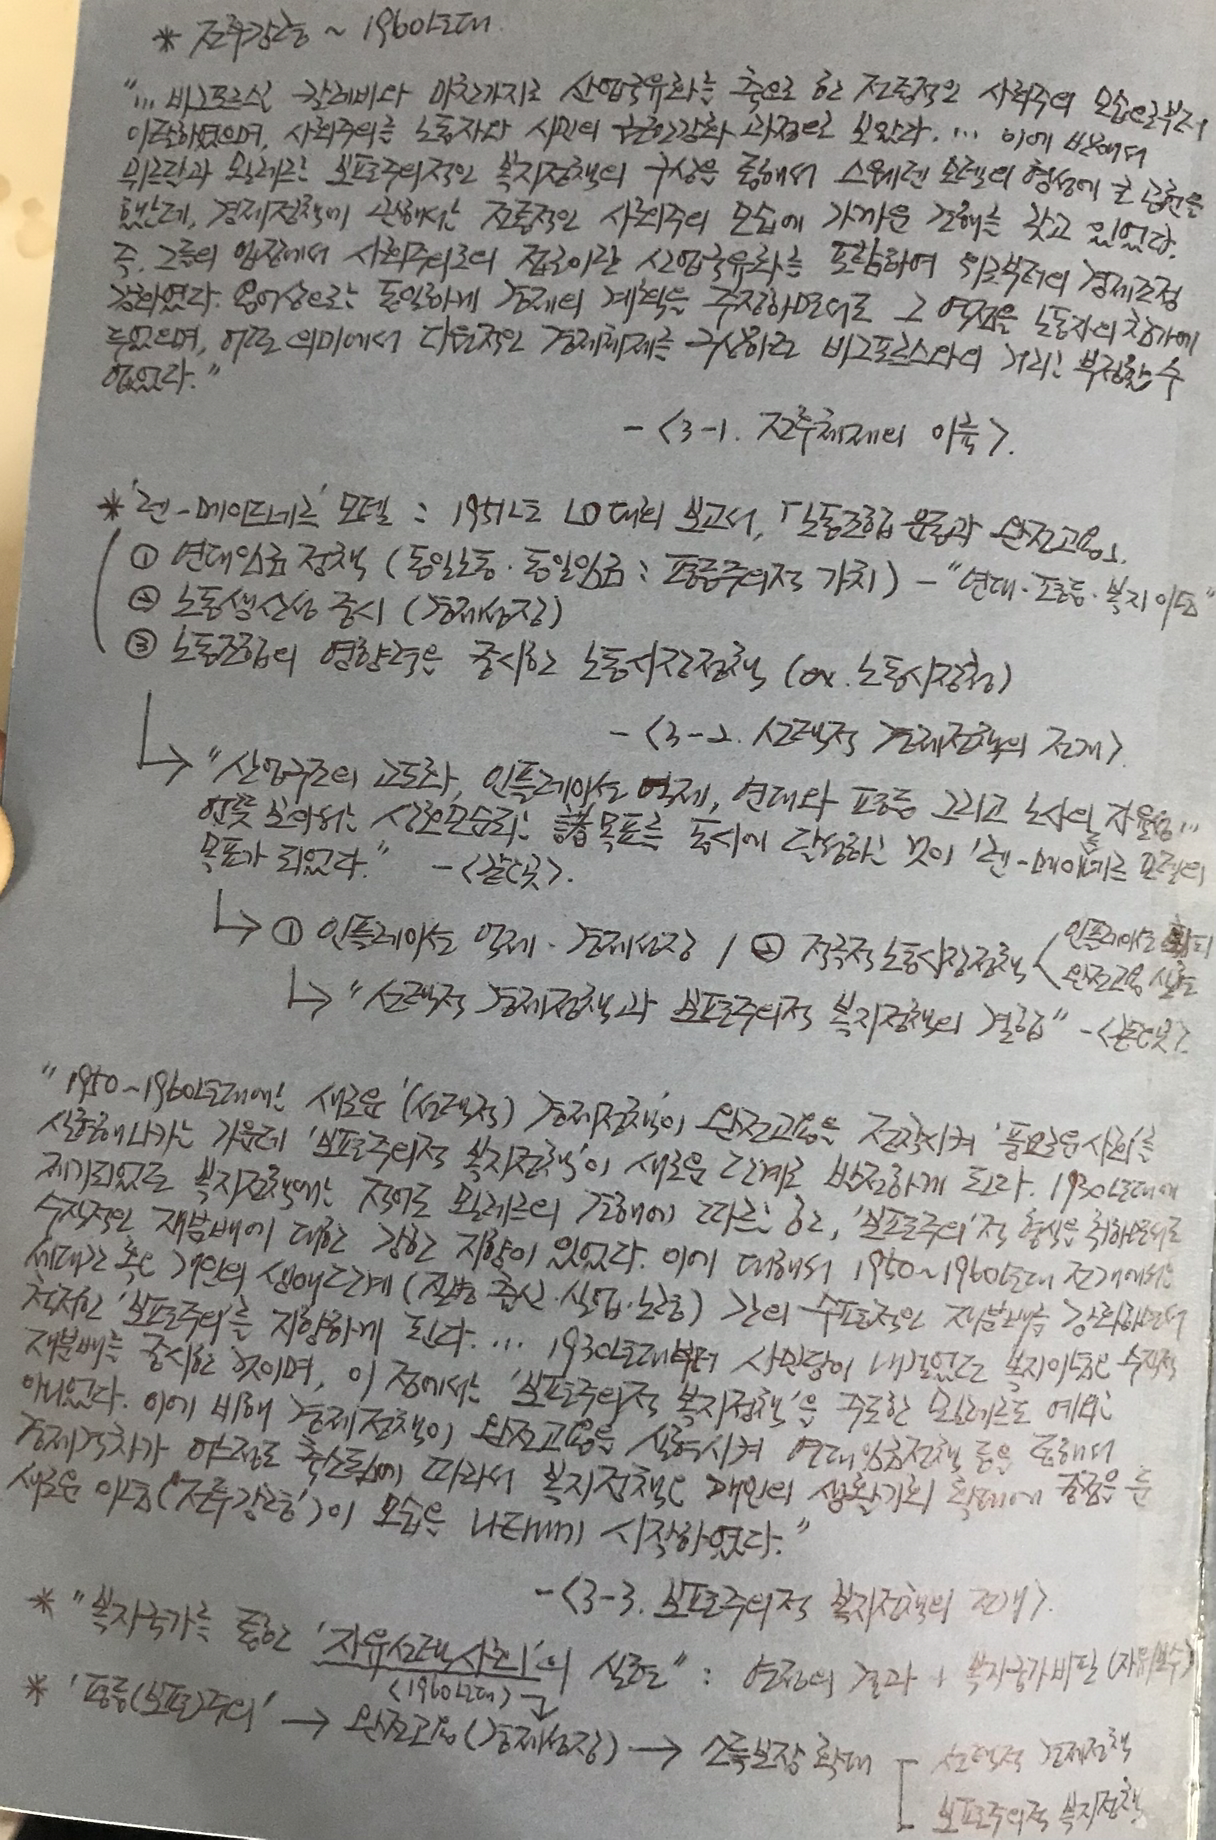 * 전후강령 ~ 1960년대
"... 비그포르스는 칼레비와 마찬가지로 산업국유화를 축으로 한 전통적인 사회주의 모습으로부터
이탈하였으며, 사회주의를 노동자와 시민의 권한강화 과정으로 보았다. ... 이에 반해서
뮈르달과 묄레르는 보편주의적인 복지정책의 구상을 통해서 스웨덴 모델의 형성에 큰 공헌을
했는데, 경제정책에 관해서는 전통적인 사회주의 모습에 가까운 견해를 갖고 있었다.
즉, 그들의 입장에서 사회주의로의 접근이란 산업국유화를 포함하여 위로부터의 경제조정
강화였다. 용어상으로는 동일하게 경제의 계획을 주장하면서도 그 역점을 노동자의 참가에
두었으며, 어떤 의미에서 다원적인 경제체제를 구상하는 비그포르스와의 거리는 부정할 수
없었다."
- <3-1. 전후체제의 이륙>.
* '렌-메이드네르' 모델 : 1951년 LO 대회 보고서, 「노동조합 운동과 완전고용」.
① 연대임금 정책 (동일노동·동일임금 : 평등주의적 가치) - "연대·평등·복지이념"
② 노동생산성 중시 (경제성장)
③ 노동조합의 영향력을 중시한 노동시장정책 (ex. 노동시장청)
- <3-2. 선택적 경제정책의 전개>.
↳ "산업구조의 고도화, 인플레이션 억제, 연대와 평등 그리고 노사의 자율 등...
언뜻 보아서는 상호모순되는 諸목표를 동시에 달성하는 것이 '렌-메이드네르 모델'의
목표가 되었다." - <같은 곳>.
↳ ① 인플레이션 억제·경제성장 / ② 적극적 노동시장정책 < 인플레이션
완전고용 실현
↳ "선택적 경제정책과 보편주의적 복지정책의 결합" - <같은 곳>.
"1950~1960년대에는 새로운 '(선택적) 경제정책'이 완전고용을 전착시켜 '풍요로운 사회'를
실현해나가는 가운데 '보편주의적 복지정책'이 새로운 단계로 발전하게 된다. 1930년대에
제기되었던 복지정책에는 적어도 묄레르의 견해에 따르는 한, '보편주의'적 형식을 취하면서도
수직적인 재분배에 대한 강한 지향이 있었다. 이에 대해서 1950~1960년대 전개에서는
세대간 혹은 개인의 생애단계 (질병·출산·실업·노령) 간의 수평적인 재분배를 강화하면서
철저한 '보편주의'를 지향하게 된다. ... 1930년대부터 사민당이 내걸었던 복지이념은 수직적
재분배를 중시한 것이며, 이 점에서는 '보편주의적 복지정책'을 주도한 묄레르도 예외는
아니었다. 이에 비해 경제정책이 완전고용을 실현시켜 연대임금정책 등을 통해서
경제격차가 어느정도 축소됨에 따라서 복지정책은 개인의 생활기회 확대에 중점을 둔
새로운 이념('전후강령')이 모습을 나타내기 시작하였다."
- <3-3. 보편주의적 복지정책의 전개>.
* "복지국가를 통한 '자유선택사회'의 실현" : 연정의 결과 + 복지국가비판 (자유보수)
<1960년대>
* '평등(보편)주의' → 완전고용 (경제성장) → 소득보장 확대
선택적 경제정책
보편주의적 복지정책